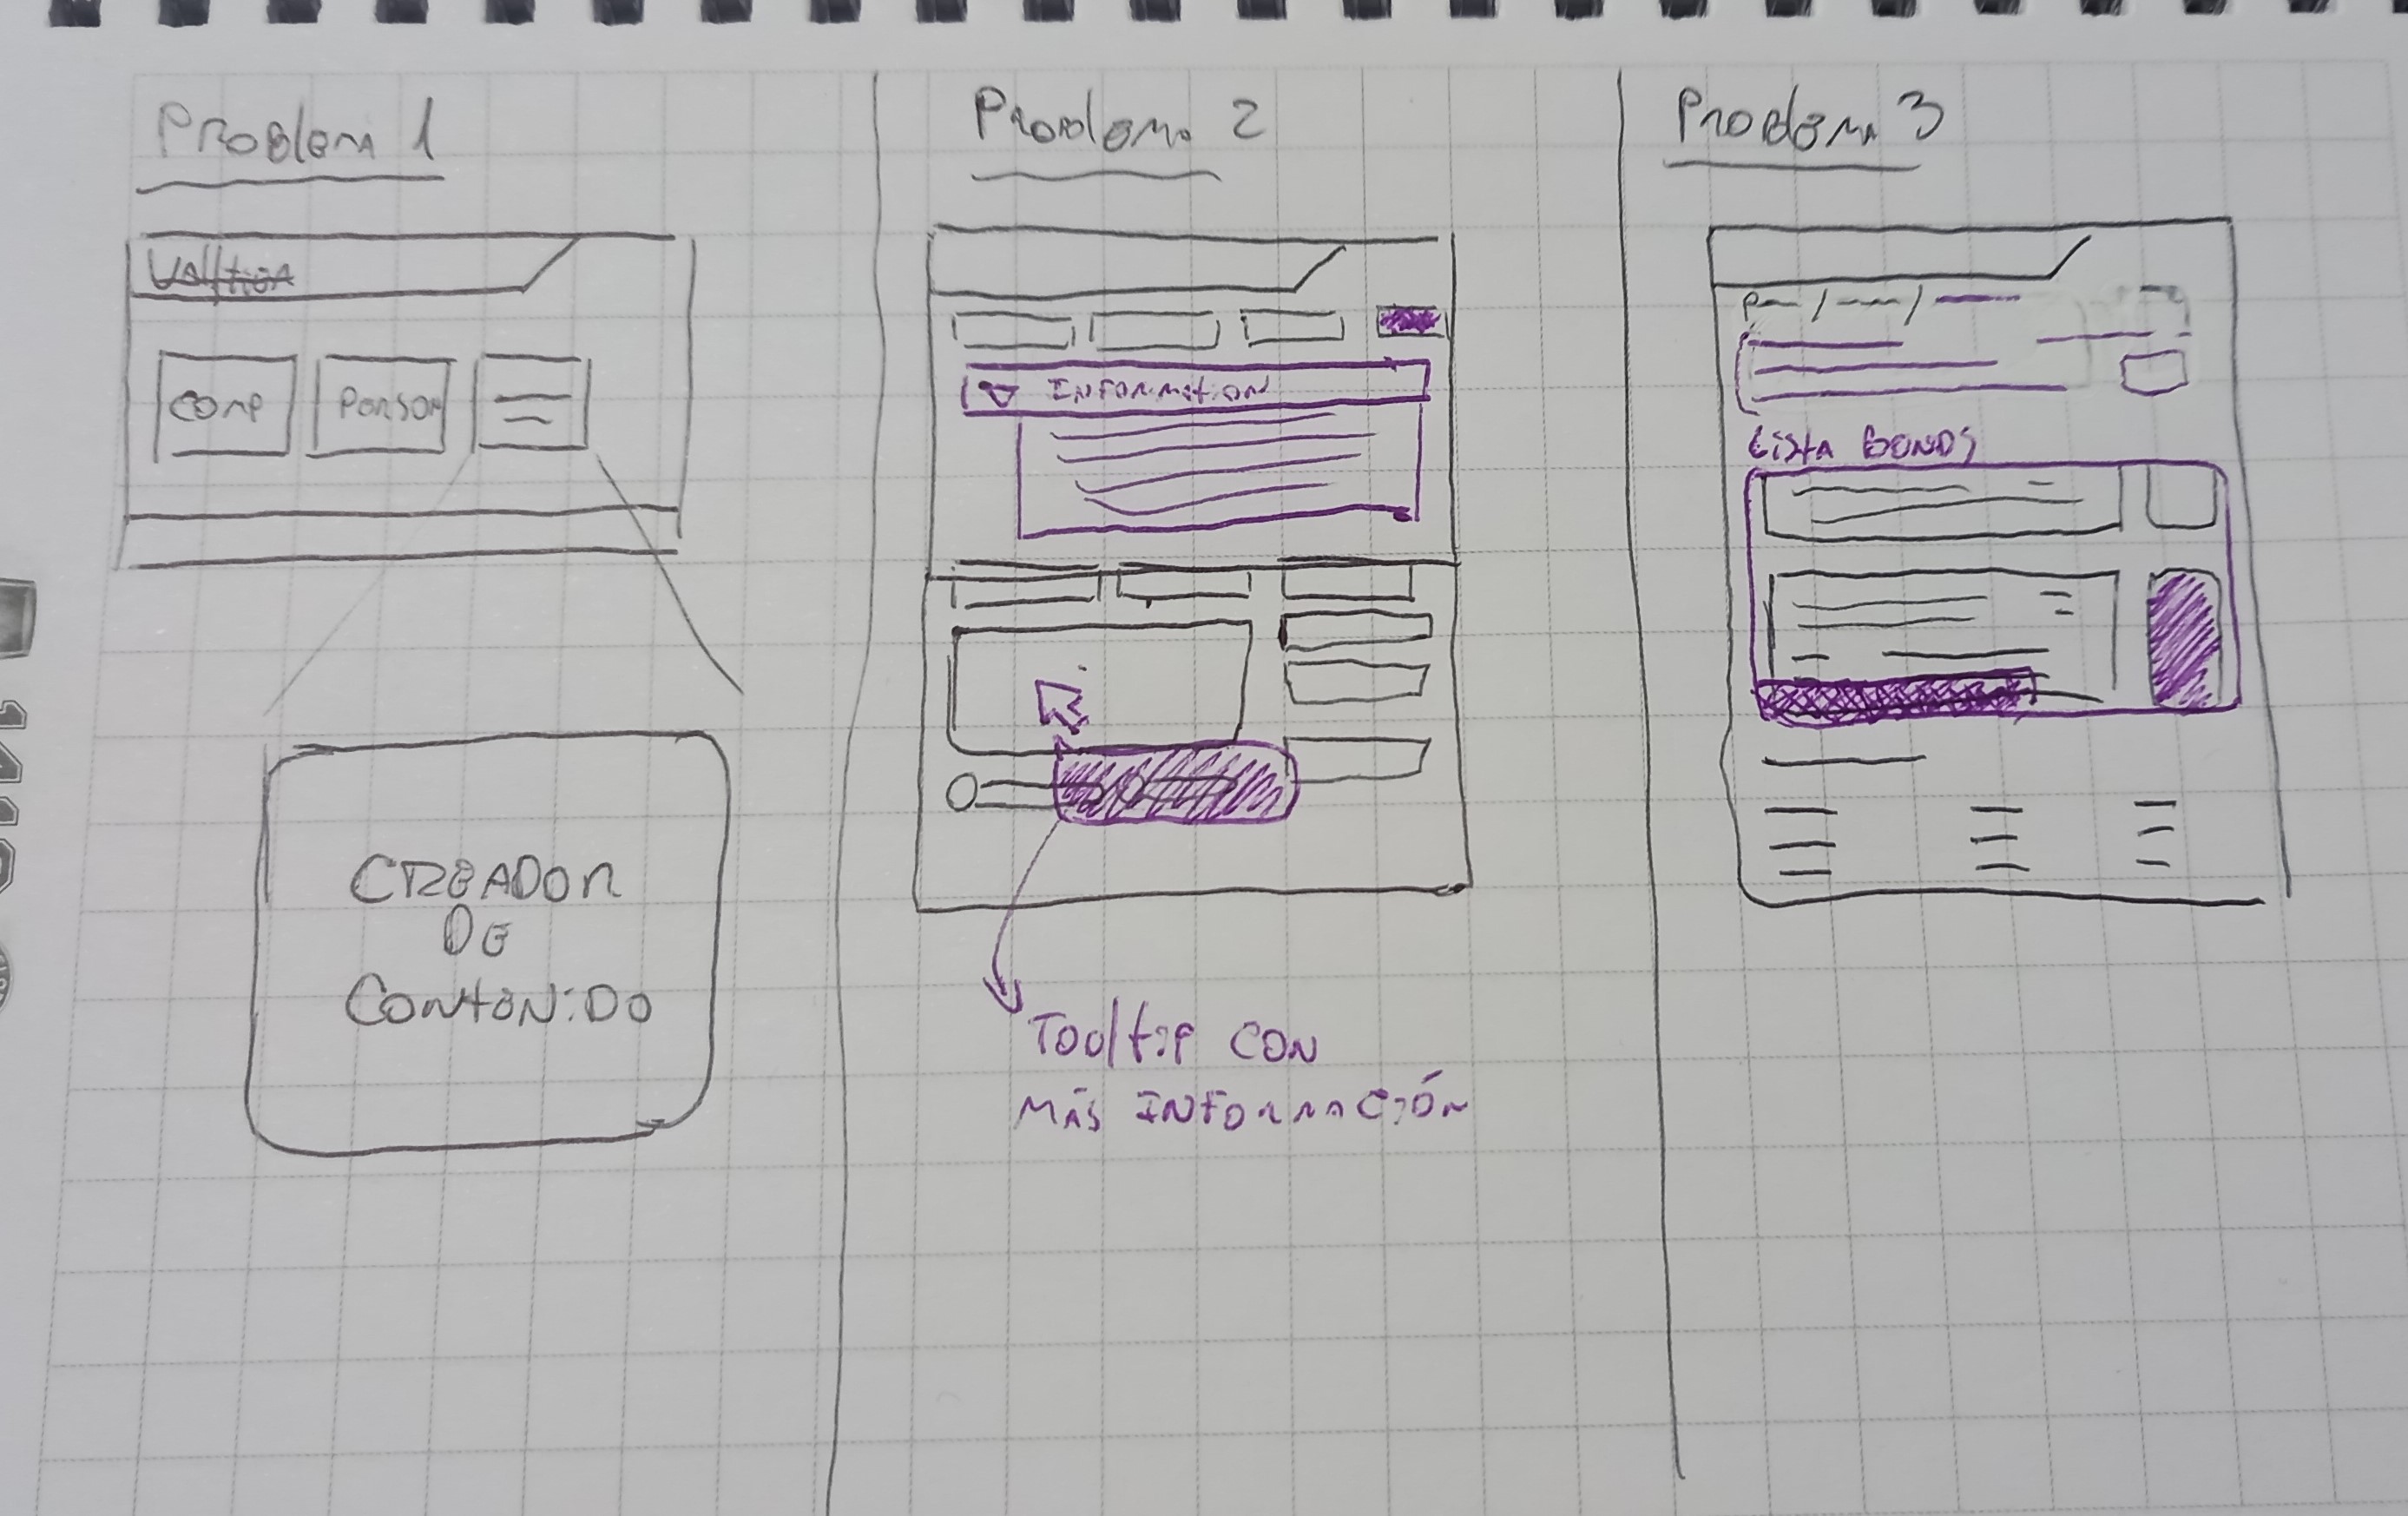 Problem 1
COMP
PERSON
CREADOR
DE
CONTENIDO
Problema 2
INFORMATION
Tooltip CON
MÁS INFORMACIÓN
Problema 3
Lista BONDS